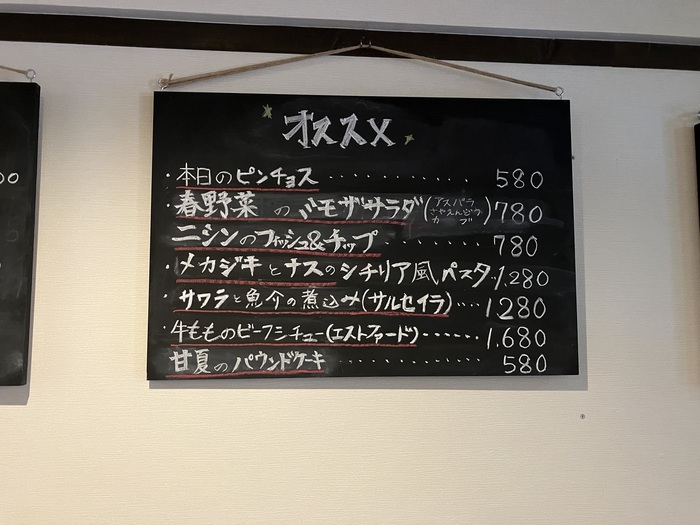 オススメ
・本日のピンチョス ・・・・・・・・・・・ 580
・春野菜のミモザサラダ(アスパラ さやえんどう カブ)780
ニシンのフィッシュ&チップ ・・・・・・・・ 780
・メカジキとナスのシチリア風パスタ・1,280
・サワラと魚介の煮込み(サルセイラ)・・・・1,280
・牛もものビーフシチュー(エストファード)------1,680
甘夏のパウンドケーキ ・・・・・・・・・・・・ 580